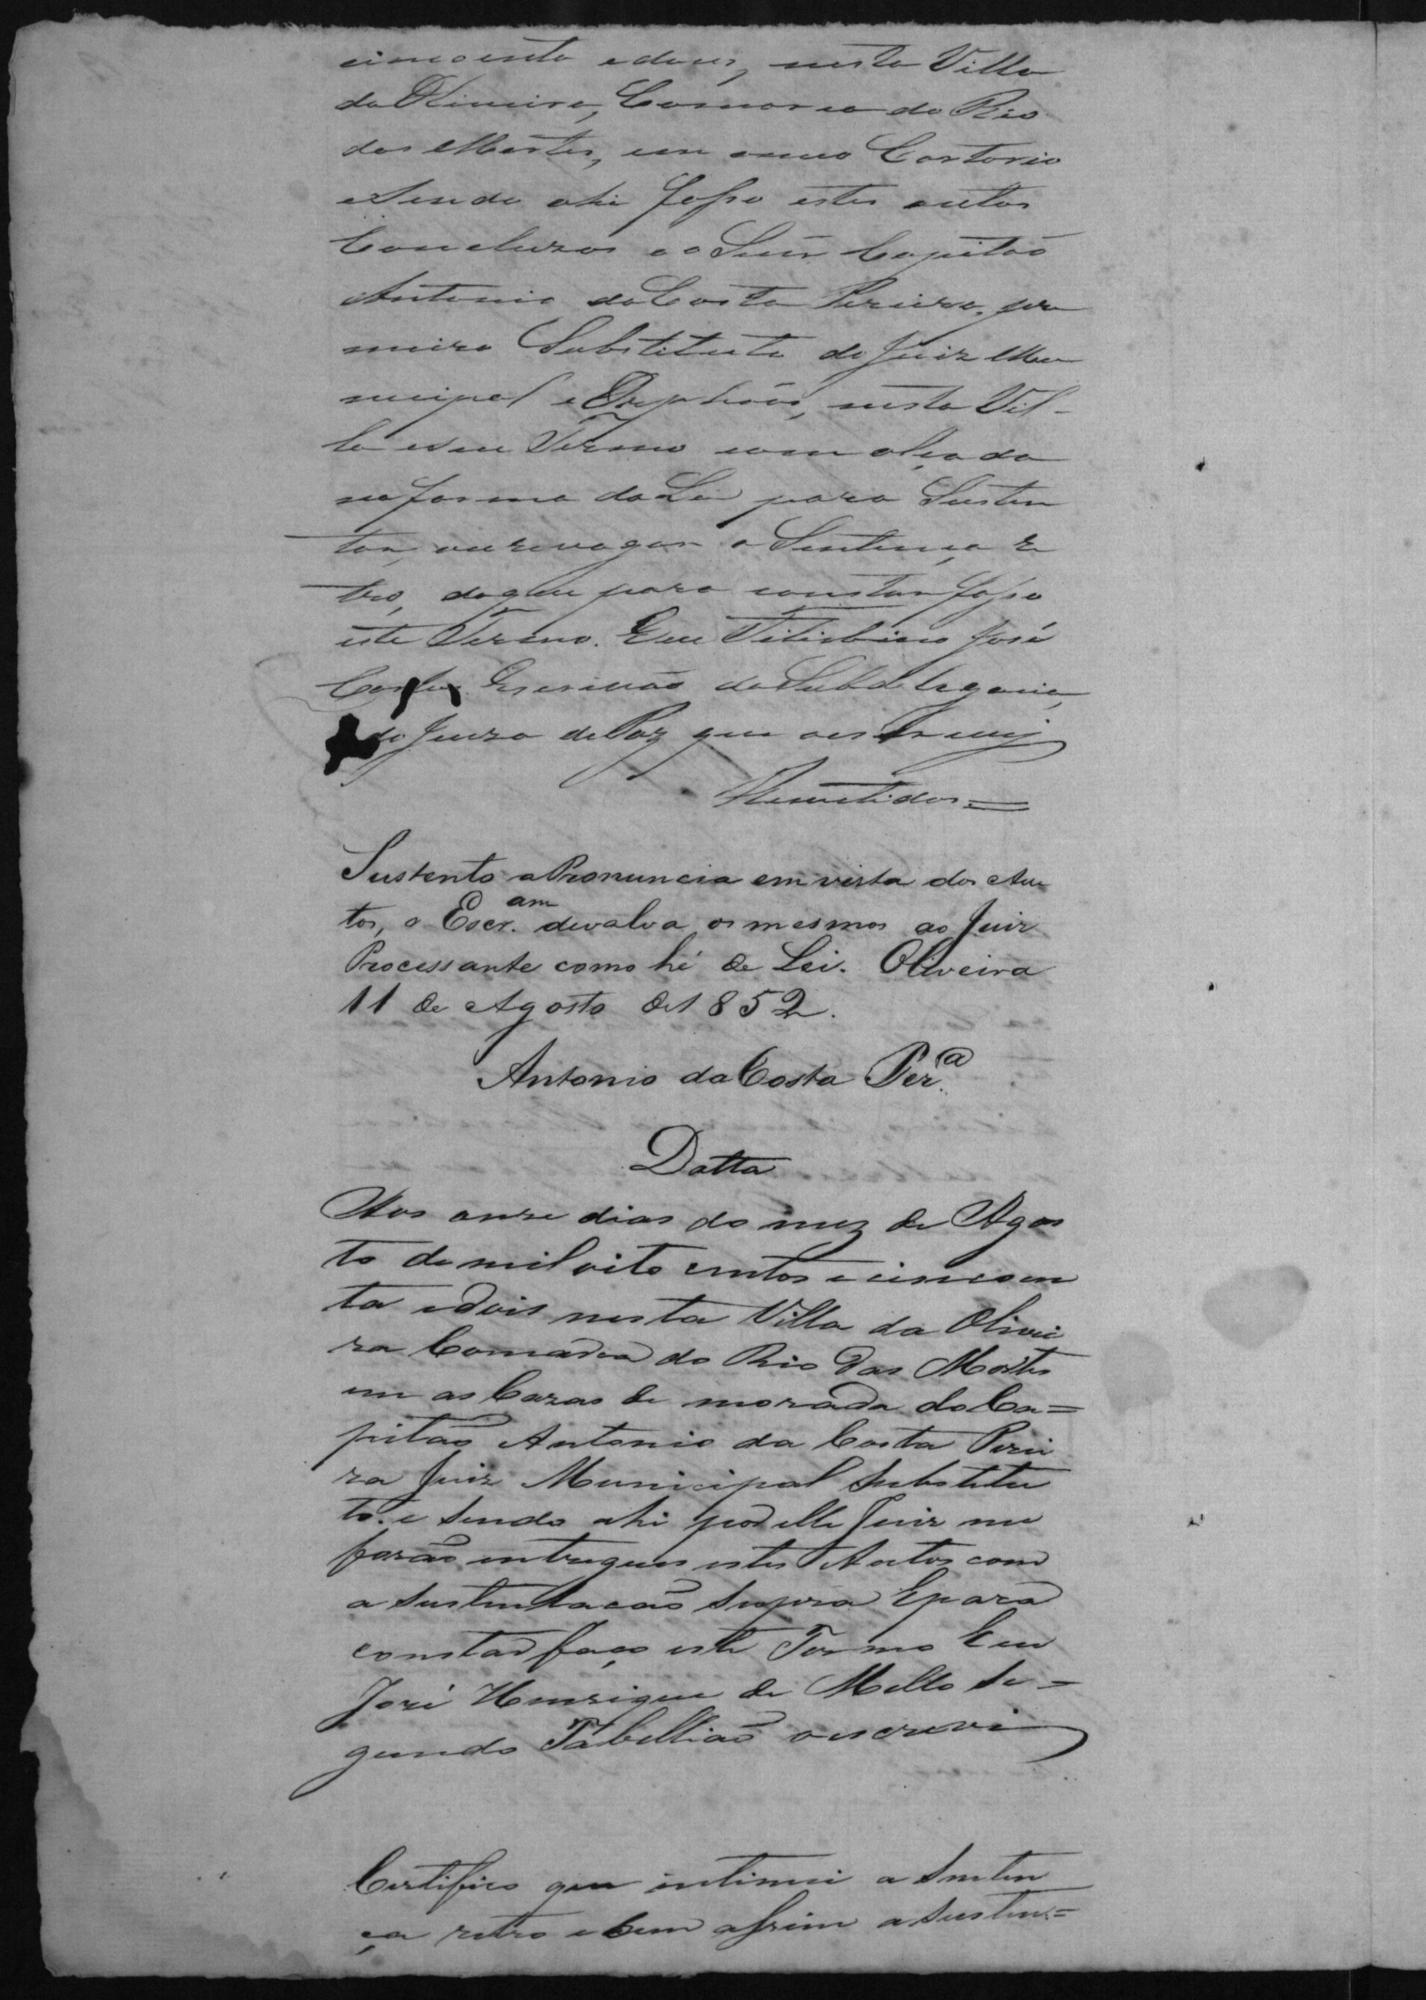 cincoenta e dous, nesta Villa
da Oliveira, Comarca do Rio
das Mortes, em meu Cartorio
e sendo ahi faço estes autos
Concluzos ao Senr. Capitão
Antonio da Costa Pereira, pri
meiro Substituto do Juiz Mu
nicipal e Orphãos, nesta Vil-
la e seu Termo com alçada
na forma da Lei para Susten
tar, ou revogar a Sentença re
tro, do que para constar faço
este Termo. Eu José
Escrivão da Subdelegacia,
do Juizo de Paz que o escrevi
Remetidos =
Sustento a Pronuncia em vista dos Au
tos, o Escr.am devolva os mesmos ao Juiz
Processante como hé de Lei. Oliveira
11 de Agosto de 1852.
Antonio da Costa Per.a
Datta
Aos onze dias do mez de Agos
to de mil oito centos e cincoen
ta e dois nesta Villa da Olivei
ra Comarca do Rio das Mortes
em as Cazas de morada do Ca=
pitão Antonio da Costa Perei
ra Juiz Municipal Substitu
to. e sendo ahi por elle Juiz me
forão entregues estes Autos com
a sustentacão supra E para
constar faço este Termo Eu
José Henrique de Mello Se=
gundo Tabellião o escrevi
Certifico que intimei a Senten
ça retro e bem assim a susten=